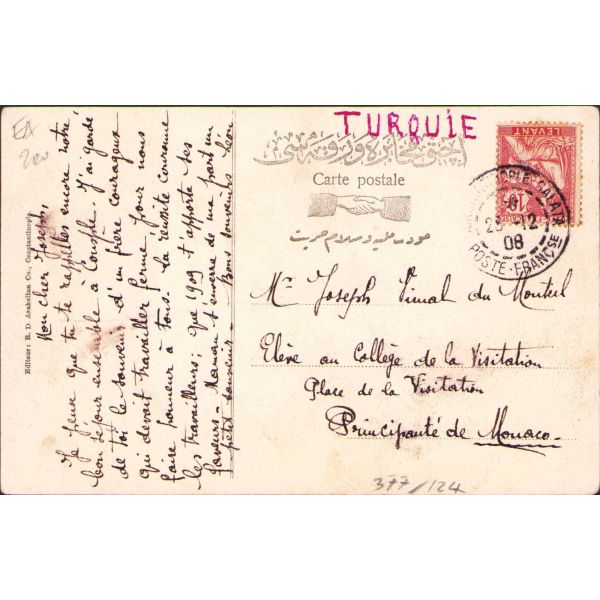 EA
200
Editeur: R. D. Arakélian Co., Constantinople.
Mon cher Joseph,
Je pense que tu te rappelles encore notre
bon séjour ensemble à Consple. J'ai gardé
de toi le souvenir d'un frère courageux
qui devait travailler ferme pour nous
faire honneur à tous. La réussite couronne
les travailleurs; que 1909 t'apporte ses
faveurs - Maman t'enverra de ma part un
petit souvenir - Bons souvenirs Léon
TURQUIE
Carte postale
LEVANT
GALATA
23 -12-
08
POSTE-FRANÇSE
Mr Joseph Vimal du Monteil
Elève au Collège de la Visitation
Place de la Visitation
Principauté de Monaco-
377/124